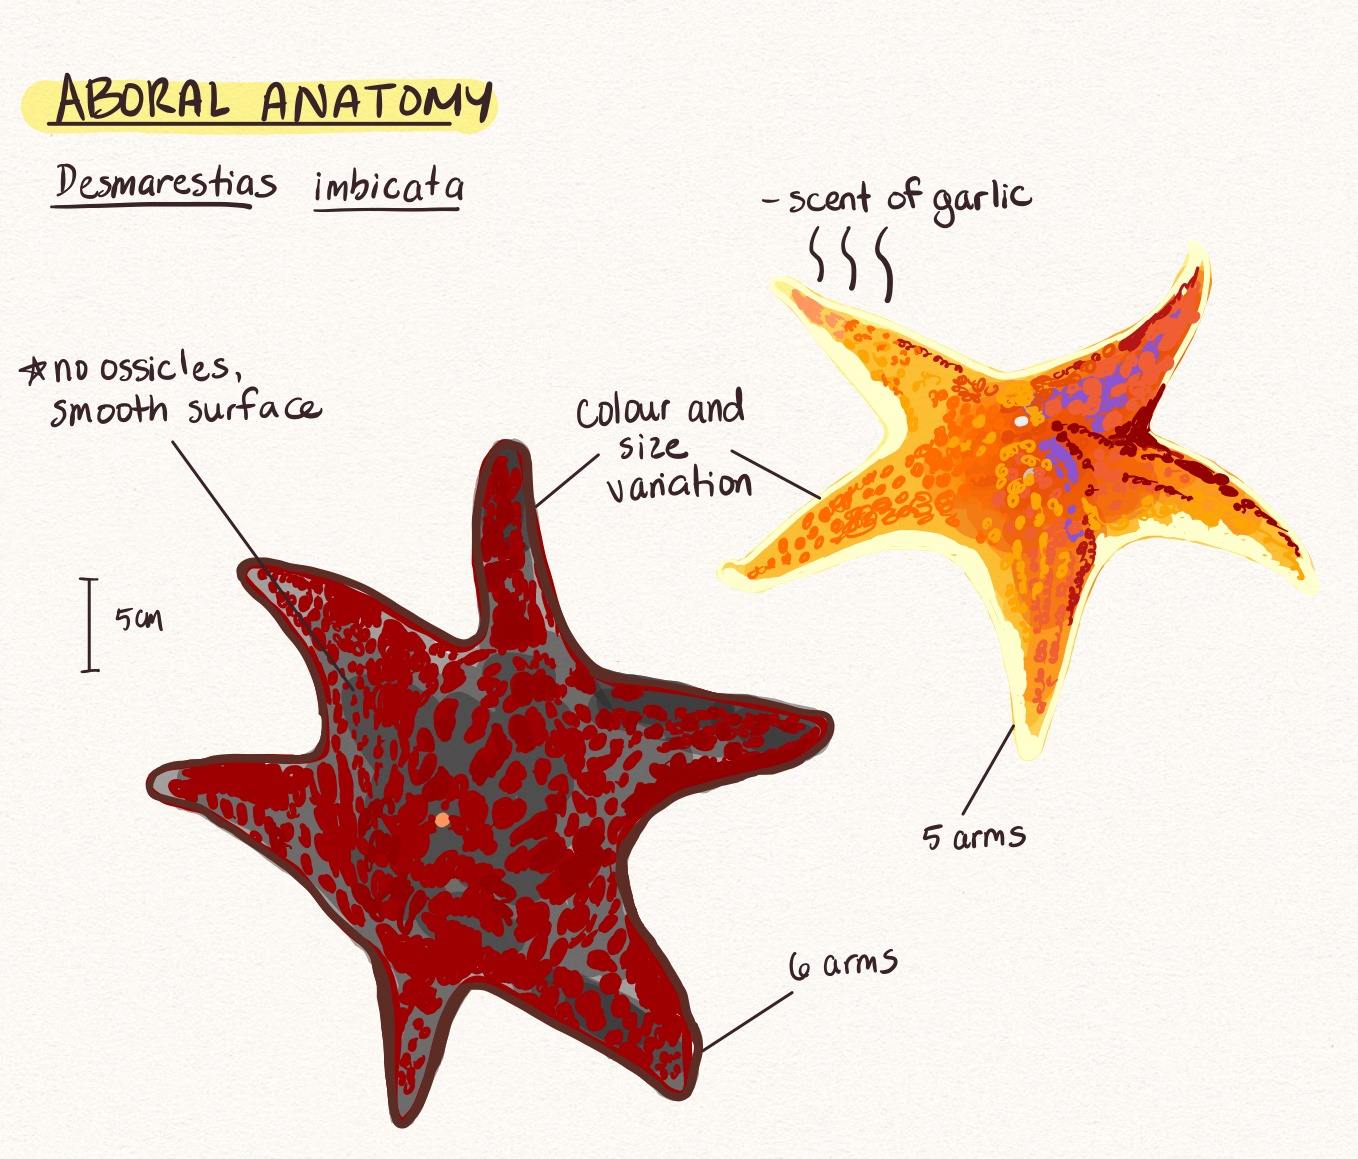 ABORAL ANATOMY
Desmarestias imbicata
- scent of garlic
☆ no ossicles,
smooth surface
Colour and
size
variation
5cm
5 arms
6 arms